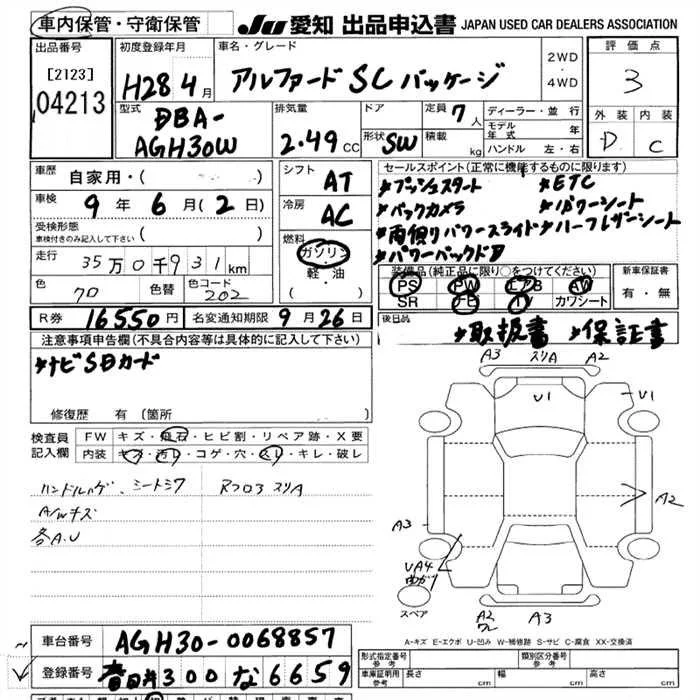 車内保管・守衛保管
JU 愛知 出品申込書 JAPAN USED CAR DEALERS ASSOCIATION
出品番号
[2123]
04213
初度登録年月
H28 4月
車名・グレード
アルファード SCパッケージ
2WD
・
4WD
評価点
3
外装 内装
D C
型式
DBA-
AGH30W
排気量
2.49 CC
ドア
形状 SW
定員 7人
積載 kg
ディーラー・並行
モデル年式 年
ハンドル 左・右
車歴 自家用・( )
車検 9年 6月(2日)
受検形態
車検付きのみ記入して下さい ( )
走行 35万0千931km
色 クロ 色替 色コード 202
シフト AT
冷房 AC
燃料
ガソリン
・
軽・油
( )
セールスポイント(正常に機能するものに限ります)
*プッシュスタート *ETC
*バックカメラ *パワーシート
*両側パワースライド *ハーフレザーシート
*パワーバックドア
装備品(純正品に限り○をつけてください)
PS PW エアB AW
SR ナビ TV カワシート
新車保証書
有・無
R券 16550円 名変通知期限 9月26日
後日品
*取扱書 *保証書
注意事項申告欄(不具合内容等は具体的に記入して下さい)
*ナビSDカード
修復歴 有(箇所 )
検査員記入欄
FW キズ・飛石・ヒビ割・リペア跡・X要
内装 キズ・汚レ・コゲ・穴・スレ・キレ・破レ
ハンドルハゲ、シートシワ Rフロア スリA
A/Wキズ
各A.U
A3 スリA A2
U1
U1
A2
A3
UA4
曲がり
スペア
A2
ワレ
A3
A-キズ E-エクボ U-凹み W-補修跡 S-サビ C-腐食 XX-交換済
車台番号 AGH30-0068857
登録番号 春日井300 な 6659
形式指定番号
参考
類別区分番号
参考
車庫証明用
参考
長さ cm 幅 cm 高さ cm